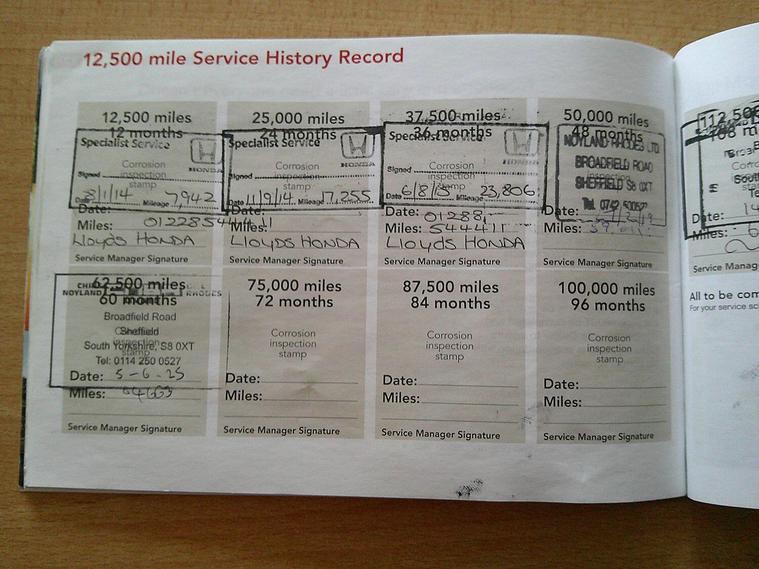 12,500 mile Service History Record
12,500 miles
12 months
Specialist Service
HONDA
Corrosion
inspection
stamp
Signed
Date 8/1/14 Mileage 7,942
Date:
Miles:
Lloyds HONDA
Service Manager Signature
25,000 miles
24 months
Specialist Service
HONDA
Corrosion
inspection
stamp
Signed
Date 11/9/14 Mileage 17,255
Date:
Miles:
Lloyds HONDA
Service Manager Signature
37,500 miles
36 months
Specialist Service
HONDA
Corrosion
inspection
stamp
Signed
Date 6/8/15 Mileage 23,806
Date:
Miles: 544411
Lloyds HONDA
Service Manager Signature
50,000 miles
48 months
NOYLAND RHODES LTD
BROADFIELD ROAD
SHEFFIELD S8 0XT
Tel. 0742 500527
Date:
Miles:
Service Manager Signature
62,500 miles
60 months
NOYLAND RHODES
Broadfield Road
Sheffield
Corrosion
inspection
stamp
South Yorkshire, S8 0XT
Tel: 0114 250 0527
Date: 5-6-25
Miles:
Service Manager Signature
75,000 miles
72 months
Corrosion
inspection
stamp
Date:
Miles:
Service Manager Signature
87,500 miles
84 months
Corrosion
inspection
stamp
Date:
Miles:
Service Manager Signature
100,000 miles
96 months
Corrosion
inspection
stamp
Date:
Miles:
Service Manager Signature
112,500
108 m
Date:
Miles:
Service Manag
All to be com
For your service sc